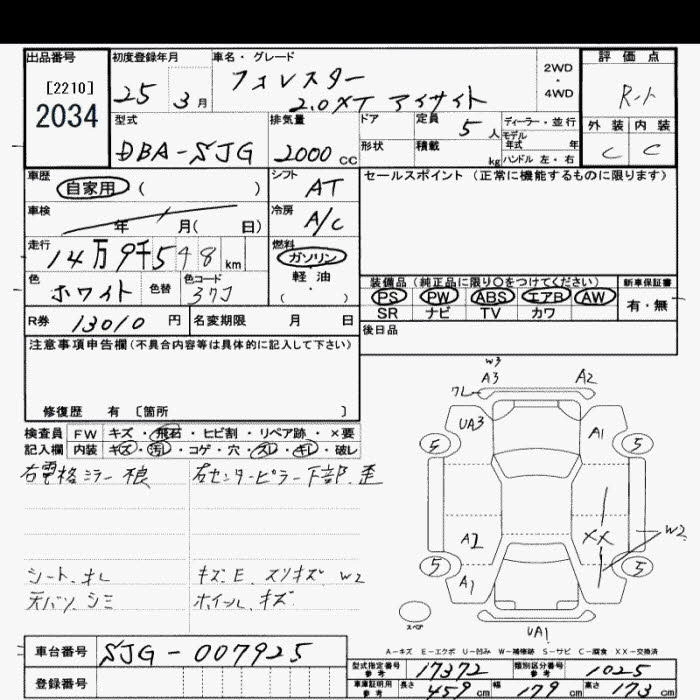 出品番号 初度登録年月 車名・グレード 評価点
[2210] 25年 3月 フォレスター 2WD・4WD R-ト
2034 2.0XT アイサイト
型式 排気量 ドア 定員 5人 ディーラー・並行 外装 内装
DBA-SJG 2000cc 形状 積載 kg モデル年式 年 C C
ハンドル 左・右
車歴 自家用 ( ) シフト AT セールスポイント(正常に機能するものに限ります)
車検 年 月( 日) 冷房 A/C
走行 14万9千548km 燃料 ガソリン
軽・油
( )
色 ホワイト 色替 色コード 37J
装備品(純正品に限り○をつけてください) 新車保証書
PS PW ABS エアB AW 有・無
SR ナビ TV カワ
R券 13010円 名変期限 月 日 後日品
注意事項申告欄(不具合内容等は具体的に記入して下さい)
修復歴 有 [箇所 ]
検査員 FW キズ・飛石・ヒビ割・リペア跡・×要
記入欄 内装 キズ・汚レ・コゲ・穴・スレ・キレ・破レ
右電格ミラー不良 右センターピラー下部 歪
シート、キレ キズ、E、スリキズ、W2
天バリ、シミ ホイール、キズ
W3
A3 A2
ワレ
UA3 A1
5 5
A2 XX W2
5 5
A1
スペア UA1
A-キズ E-エクボ U-凹み W-補修跡 S-サビ C-腐食 XX-交換済
車台番号 SJG-007925
登録番号
型式指定番号 参考 17372 類別区分番号 参考 1025
車庫証明用 参考 長さ 459cm 幅 179cm 高さ 173cm